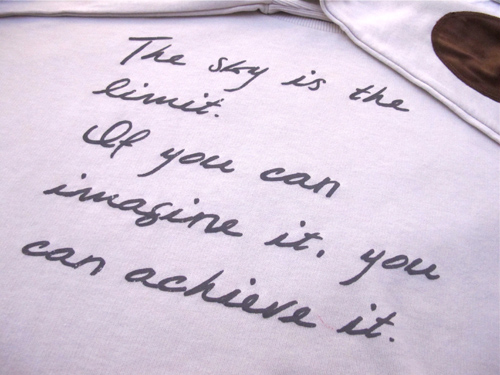 The sky is the
limit.
If you can
imagine it, you
can achieve it.